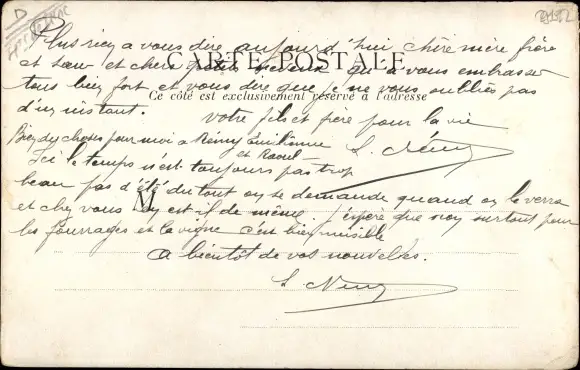 D
Plus rien a vous dire aujourd'hui chère mère frère
CARTE POSTALE
et sœur et chers petits neveux qu'a vous embrasser
tous bien fort et vous dire que je ne vous oublies pas
Ce côté est exclusivement réservé à l'adresse
d'un instant.
votre fils et frère pour la vie
Bien des choses pour moi a Rémy Emilienne
et Raoul
Ici le temps n'est toujours pas trop
beau pas d'été du tout on se demande quand on le verra
M
et chez vous en est-il de même. j'espère que non surtout pour
les fourrages et la vigne c'est bien nuisible
a bientôt de vos nouvelles.